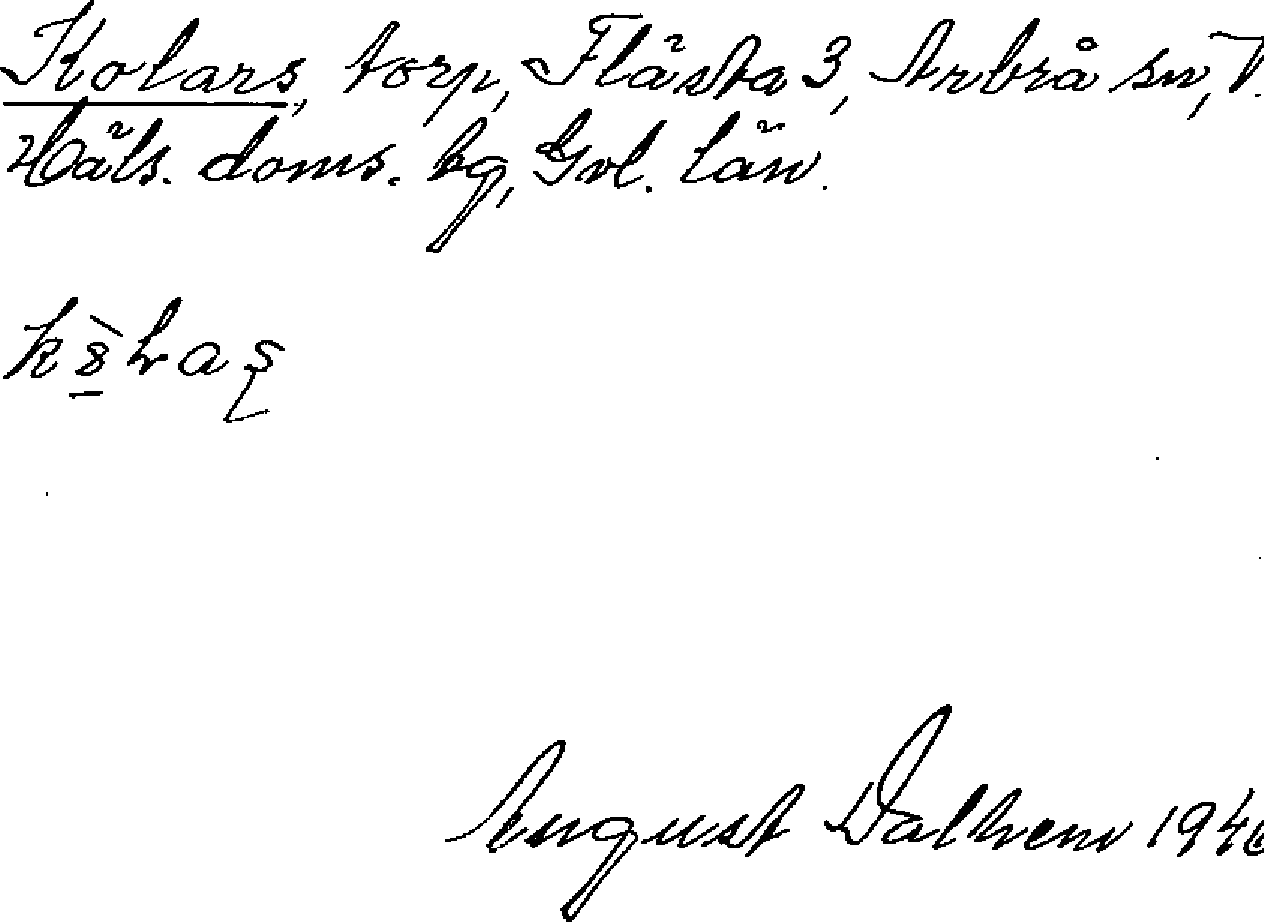 Kolars, torp, Flästa 3, Arbrå sn, V.
Häls. doms. bg, Gvl. län.
August Dalhem 194